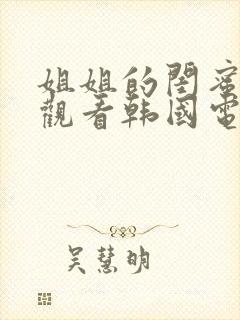 姐姐的閏蜜
觀看韩國電
吴慧明